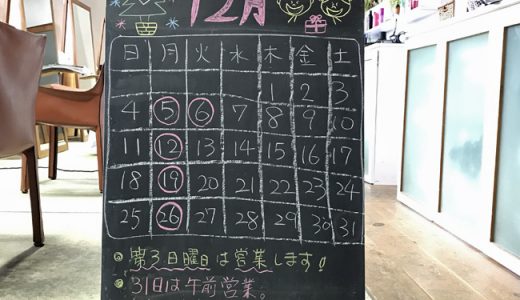 12月
日 月 火 水 木 金 土
1 2 3
4 5 6 7 8 9 10
11 12 13 14 15 16 17
18 19 20 21 22 23 24
25 26 27 28 29 30 31
第3日曜日は営業します!
31日は午前営業。